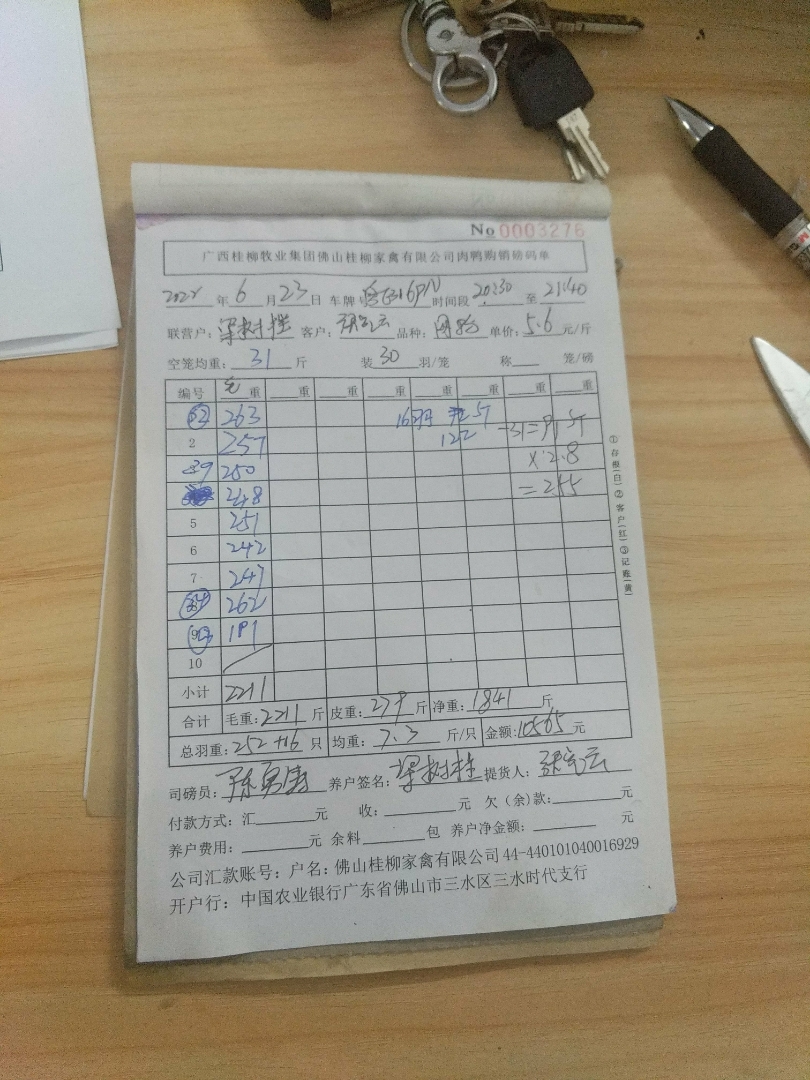 No 0003276
广西桂柳牧业集团佛山桂柳家禽有限公司肉鸭购销磅码单
2022 年 6 月 23 日 车牌号 时间段 20:30 至 21:40
联营户: 梁树桂 客户: 品种: 单价: 5.6 元/斤
空笼均重: 31 斤 装 30 羽/笼 称 笼/磅
编号 毛重 重 重 重 重 重 重 重
263 57
2 257 122 -31=91 57
250 × 2.8
248 = 255
5 251
6 242
7 247
262
191
10
小计 2211
合计 毛重: 2211 斤 皮重: 279 斤 净重: 1841 斤
总羽重: 252+16 只 均重: 7.3 斤/只 金额: 10565 元
司磅员: 养户签名: 梁树桂 提货人:
付款方式: 汇 元 收: 元 欠(余)款: 元
养户费用: 元 余料 包 养户净金额: 元
公司汇款账号: 户名: 佛山桂柳家禽有限公司 44-440101040016929
开户行: 中国农业银行广东省佛山市三水区三水时代支行
①存根(白)②客户(红)③记账(黄)